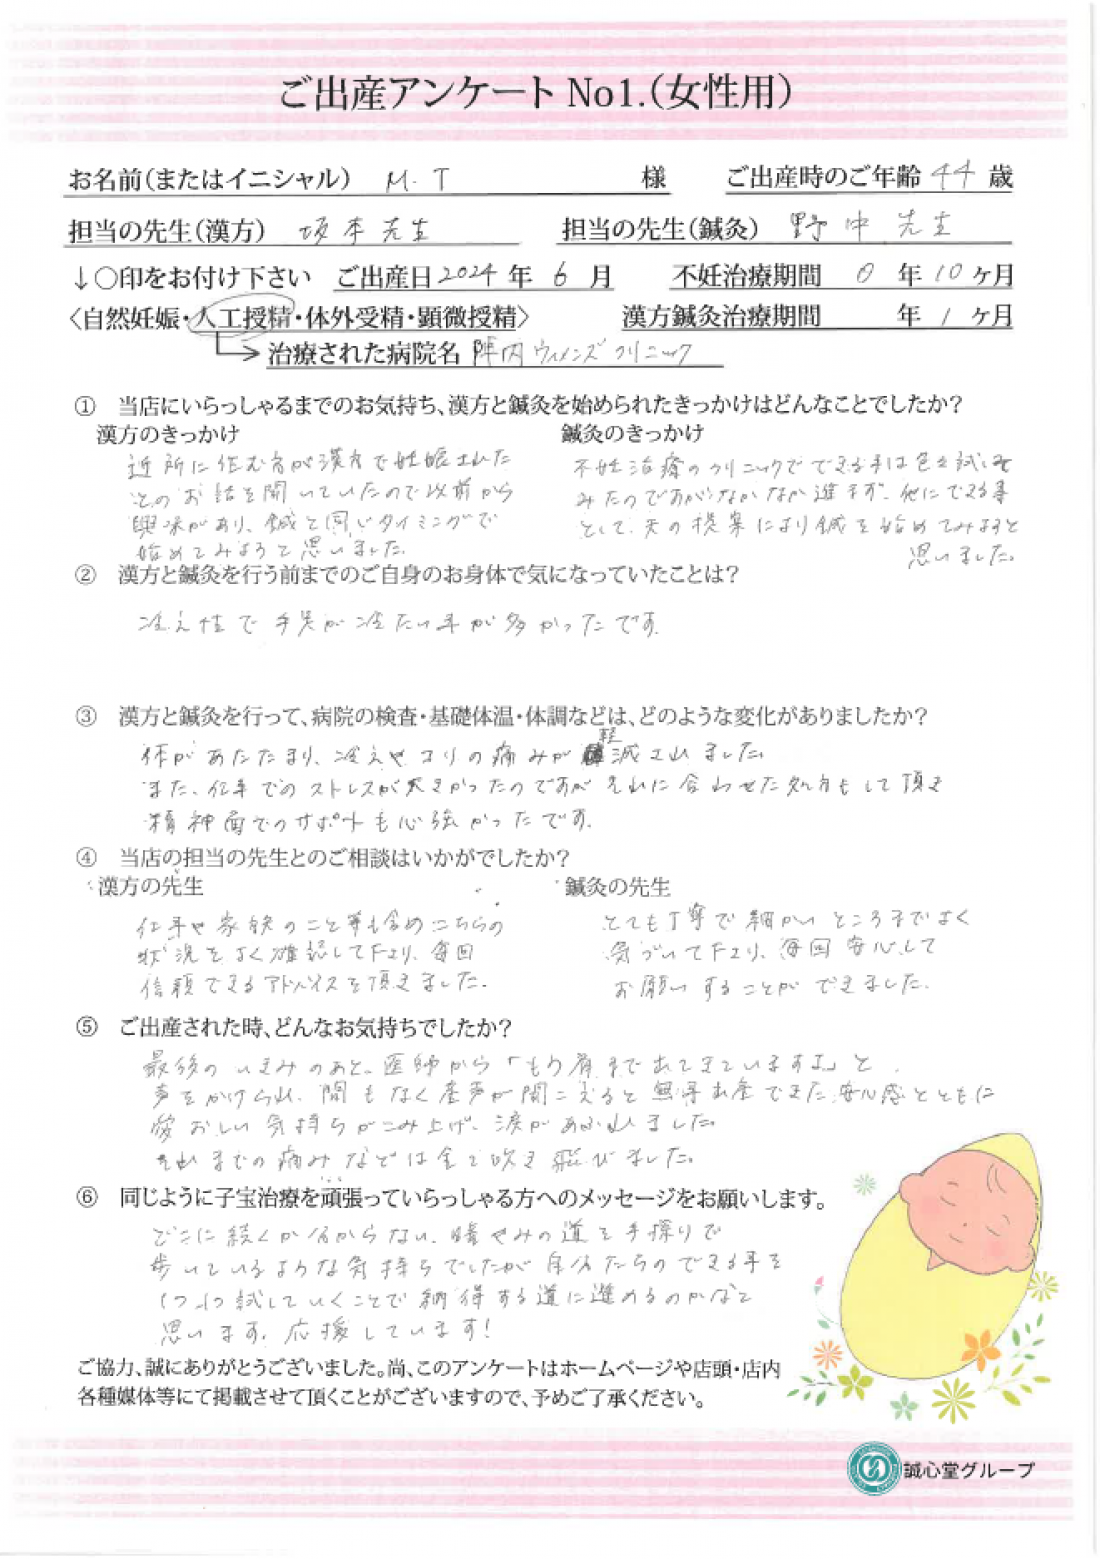 ご出産アンケート No1.(女性用)
お名前(またはイニシャル) M.T 様 ご出産時のご年齢 44 歳
担当の先生(漢方) 坂本先生 担当の先生(鍼灸) 野中 先生
↓○印をお付け下さい ご出産日 2024 年 6 月 不妊治療期間 0 年 10 ヶ月
〈自然妊娠・人工授精・体外受精・顕微授精〉 漢方鍼灸治療期間 年 1 ヶ月
治療された病院名 陣内ウィメンズクリニック
① 当店にいらっしゃるまでのお気持ち、漢方と鍼灸を始められたきっかけはどんなことでしたか?
漢方のきっかけ
近所に住む方が漢方で妊娠された
とのお話を聞いていたので以前から
興味があり、鍼と同じタイミングで
始めてみようと思いました。
鍼灸のきっかけ
不妊治療のクリニックでできる事は色々試して
みたのですがなかなか進まず、他にできる事
として、夫の提案により鍼を始めてみようと
思いました。
② 漢方と鍼灸を行う前までのご自身のお身体で気になっていたことは?
冷え性で手先が冷たい事が多かったです。
③ 漢方と鍼灸を行って、病院の検査・基礎体温・体調などは、どのような変化がありましたか?
体があたたまり、冷えやコリの痛みが軽減されました。
また、仕事でのストレスが大きかったのですがそれに合わせた処方もして頂き
精神面でのサポートも心強かったです。
④ 当店の担当の先生とのご相談はいかがでしたか?
漢方の先生
仕事や家族のこと等も含めこちらの
状況をよく確認して下さり、毎回
信頼できるアドバイスを頂きました。
鍼灸の先生
とても丁寧で細かいところまでよく
気づいて下さり、毎回安心して
お願いすることができました。
⑤ ご出産された時、どんなお気持ちでしたか?
最後のいきみのあと、医師から「もう肩まで出てきていますよ」と
声をかけられ、間もなく産声が聞こえると無事出産できた安心感とともに
愛おしい気持ちがこみ上げ、涙があふれました。
それまでの痛みなどは全て吹き飛びました。
⑥ 同じように子宝治療を頑張っていらっしゃる方へのメッセージをお願いします。
どこに続くか分からない、暗やみの道を手探りで
歩いているような気持ちでしたが自分たちのできる事を
1つ1つ試していくことで納得する道に進めるのかなと
思います。応援しています!
ご協力、誠にありがとうございました。尚、このアンケートはホームページや店頭・店内
各種媒体等にて掲載させて頂くことがございますので、予めご了承ください。
誠心堂グループ